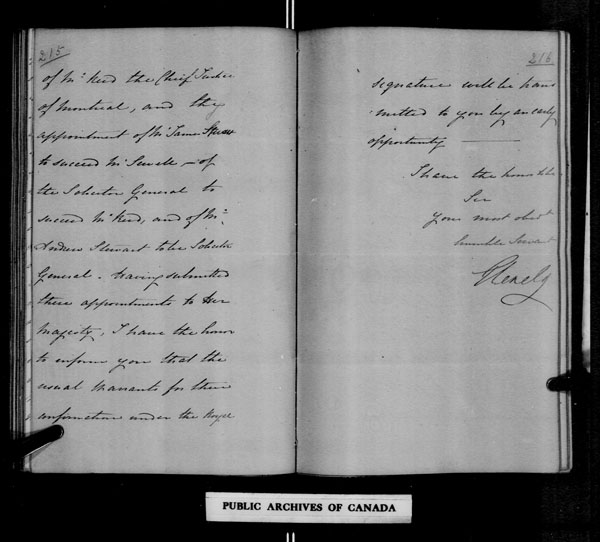 215
of Mr. Reid the Chief Justice
of Montreal, and the
appointment of Mr. James Stuart
to succeed Mr. Sewell, – of
the Solicitor General to
succeed Mr. Reid, and of Mr.
Andrew Stewart to be Solicitor
General. Having submitted
these appointments to Her
Majesty, I have the honor
to inform you that the
usual Warrants for their
confirmation under the Royal
216
signature will be trans
mitted to you by an early
opportunity ———
I have the honor to be
Sir
Your most obedt
humble Servant
Glenelg
PUBLIC ARCHIVES OF CANADA